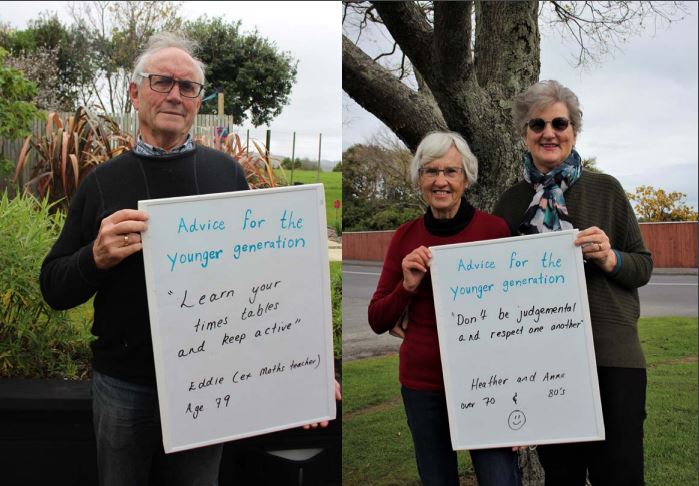 Advice for the
younger generation
"Learn your
times tables
and keep active"
Eddie (ex Maths teacher)
Age 79
Advice for the
younger generation
"Don't be judgemental
and respect one another"
Heather and Anne
over 70 & 80's